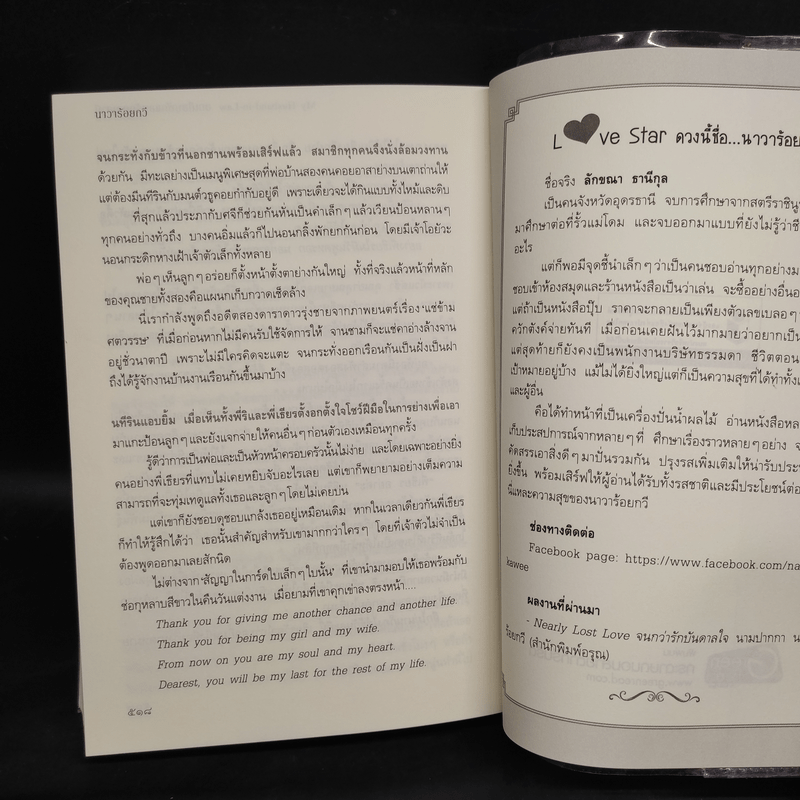 นาวาร้อยกวี
จนกระทั่งกับข้าวที่นอกชานพร้อมเสิร์ฟแล้ว สมาชิกทุกคนจึงนั่งล้อมวงทาน
ด้วยกัน มีทะเลย่างเป็นเมนูพิเศษสุดที่พ่อบ้านสองคนคอยอาสาย่างบนเตาถ่านให้
แต่ต้องมีนทีรินกับมนต์วธูคอยกำกับอยู่ดี เพราะเดี๋ยวจะได้กินแบบทั้งไหม้และดิบ
ที่สุกแล้วประภากับศจีก็ช่วยกันหั่นเป็นคำเล็กๆ แล้วเวียนป้อนหลานๆ
ทุกคนอย่างทั่วถึง บางคนอิ่มแล้วก็ไปนอนกลิ้งพักยกกันก่อน โดยมีเจ้าโอย๊วะ
นอนกระดิกหางเฝ้าเจ้าตัวเล็กทั้งหลาย
พ่อๆ เห็นลูกๆ อร่อยก็ตั้งหน้าตั้งตาย่างกันใหญ่ ทั้งที่จริงแล้วหน้าที่หลัก
ของคุณชายทั้งสองคือแผนกเก็บกวาดเช็ดล้าง
นี่เรากำลังพูดถึงอดีตสองดาราดาวรุ่งชายจากภาพยนตร์เรื่อง ‘แซ่ข้าม
ศตวรรษ’ ที่เมื่อก่อนหากไม่มีคนรับใช้จัดการให้ จานชามก็จะแช่คาอ่างล้างจาน
อยู่ชั่วนาตาปี เพราะไม่มีใครคิดจะแตะ จนกระทั่งออกเรือนกันเป็นฝั่งเป็นฝา
ถึงได้รู้จักงานบ้านงานเรือนกันขึ้นมาบ้าง
นทีรินแอบยิ้ม เมื่อเห็นทั้งพี่ริและพี่เธียรตั้งอกตั้งใจโชว์ฝีมือในการย่างเพื่อเอา
มาแกะป้อนลูกๆ และยังแจกจ่ายให้คนอื่นๆ ก่อนตัวเองเหมือนทุกครั้ง
รู้ดีว่าการเป็นพ่อและเป็นหัวหน้าครอบครัวนั้นไม่ง่าย และโดยเฉพาะอย่างยิ่ง
คนอย่างพี่เธียรที่แทบไม่เคยหยิบจับอะไรเลย แต่เขาก็พยายามอย่างเต็มความ
สามารถที่จะทุ่มเทดูแลทั้งเธอและลูกๆ โดยไม่เคยบ่น
แต่เขาก็ยังชอบดุชอบแกล้งเธออยู่เหมือนเดิม หากในเวลาเดียวกันพี่เธียร
ก็ทำให้รู้สึกได้ว่า เธอนั้นสำคัญสำหรับเขามากกว่าใครๆ โดยที่เจ้าตัวไม่จำเป็น
ต้องพูดออกมาเลยสักนิด
ไม่ต่างจาก ‘สัญญาในการ์ดใบเล็กๆ ใบนั้น’ ที่เขานำมามอบให้เธอพร้อมกับ
ช่อกุหลาบสีขาวในคืนวันแต่งงาน เมื่อยามที่เขาคุกเข่าลงตรงหน้า....
Thank you for giving me another chance and another life.
Thank you for being my girl and my wife.
From now on you are my soul and my heart.
Dearest, you will be my last for the rest of my life.
๕๑๘
L ve Star ดวงนี้ชื่อ...นาวาร้อย
ชื่อจริง ลักขณา ธานีกุล
เป็นคนจังหวัดอุดรธานี จบการศึกษาจากสตรีราชินู
มาศึกษาต่อที่รั้วแม่โดม และจบออกมาแบบที่ยังไม่รู้ว่าชี
อะไร
แต่ก็พอมีจุดชี้นำเล็กๆ ว่าเป็นคนชอบอ่านทุกอย่าง
ชอบเข้าห้องสมุดและร้านหนังสือเป็นว่าเล่น จะซื้ออย่างอื่น
แต่ถ้าเป็นหนังสือปุ๊บ ราคาจะกลายเป็นเพียงตัวเลขเบลอๆ
ควักตังค์จ่ายทันที เมื่อก่อนเคยฝันไว้มากมายว่าอยากเป็น
แต่สุดท้ายก็ยังคงเป็นพนักงานบริษัทธรรมดา ชีวิตตอน
เป้าหมายอยู่บ้าง แม้ไม่ได้ยิ่งใหญ่แต่ก็เป็นความสุขที่ได้ทำทั้ง
และผู้อื่น
คือได้ทำหน้าที่เป็นเครื่องปั่นน้ำผลไม้ อ่านหนังสือ
เก็บประสบการณ์จากหลายๆ ที่ ศึกษาเรื่องราวหลายๆ อย่าง
คัดสรรเอาสิ่งดีๆ มาปั่นรวมกัน ปรุงรสเพิ่มเติมให้น่ารับ
ยิ่งขึ้น พร้อมเสิร์ฟให้ผู้อ่านได้รับทั้งรสชาติและมีประโยชน์
นี่แหละความสุขของนาวาร้อยกวี
ช่องทางติดต่อ
Facebook page: https://www.facebook.com/na
kawee
ผลงานที่ผ่านมา
- Nearly Lost Love จนกว่ารักบันดาลใจ นามปากกา
ร้อยกวี (สำนักพิมพ์อรุณ)